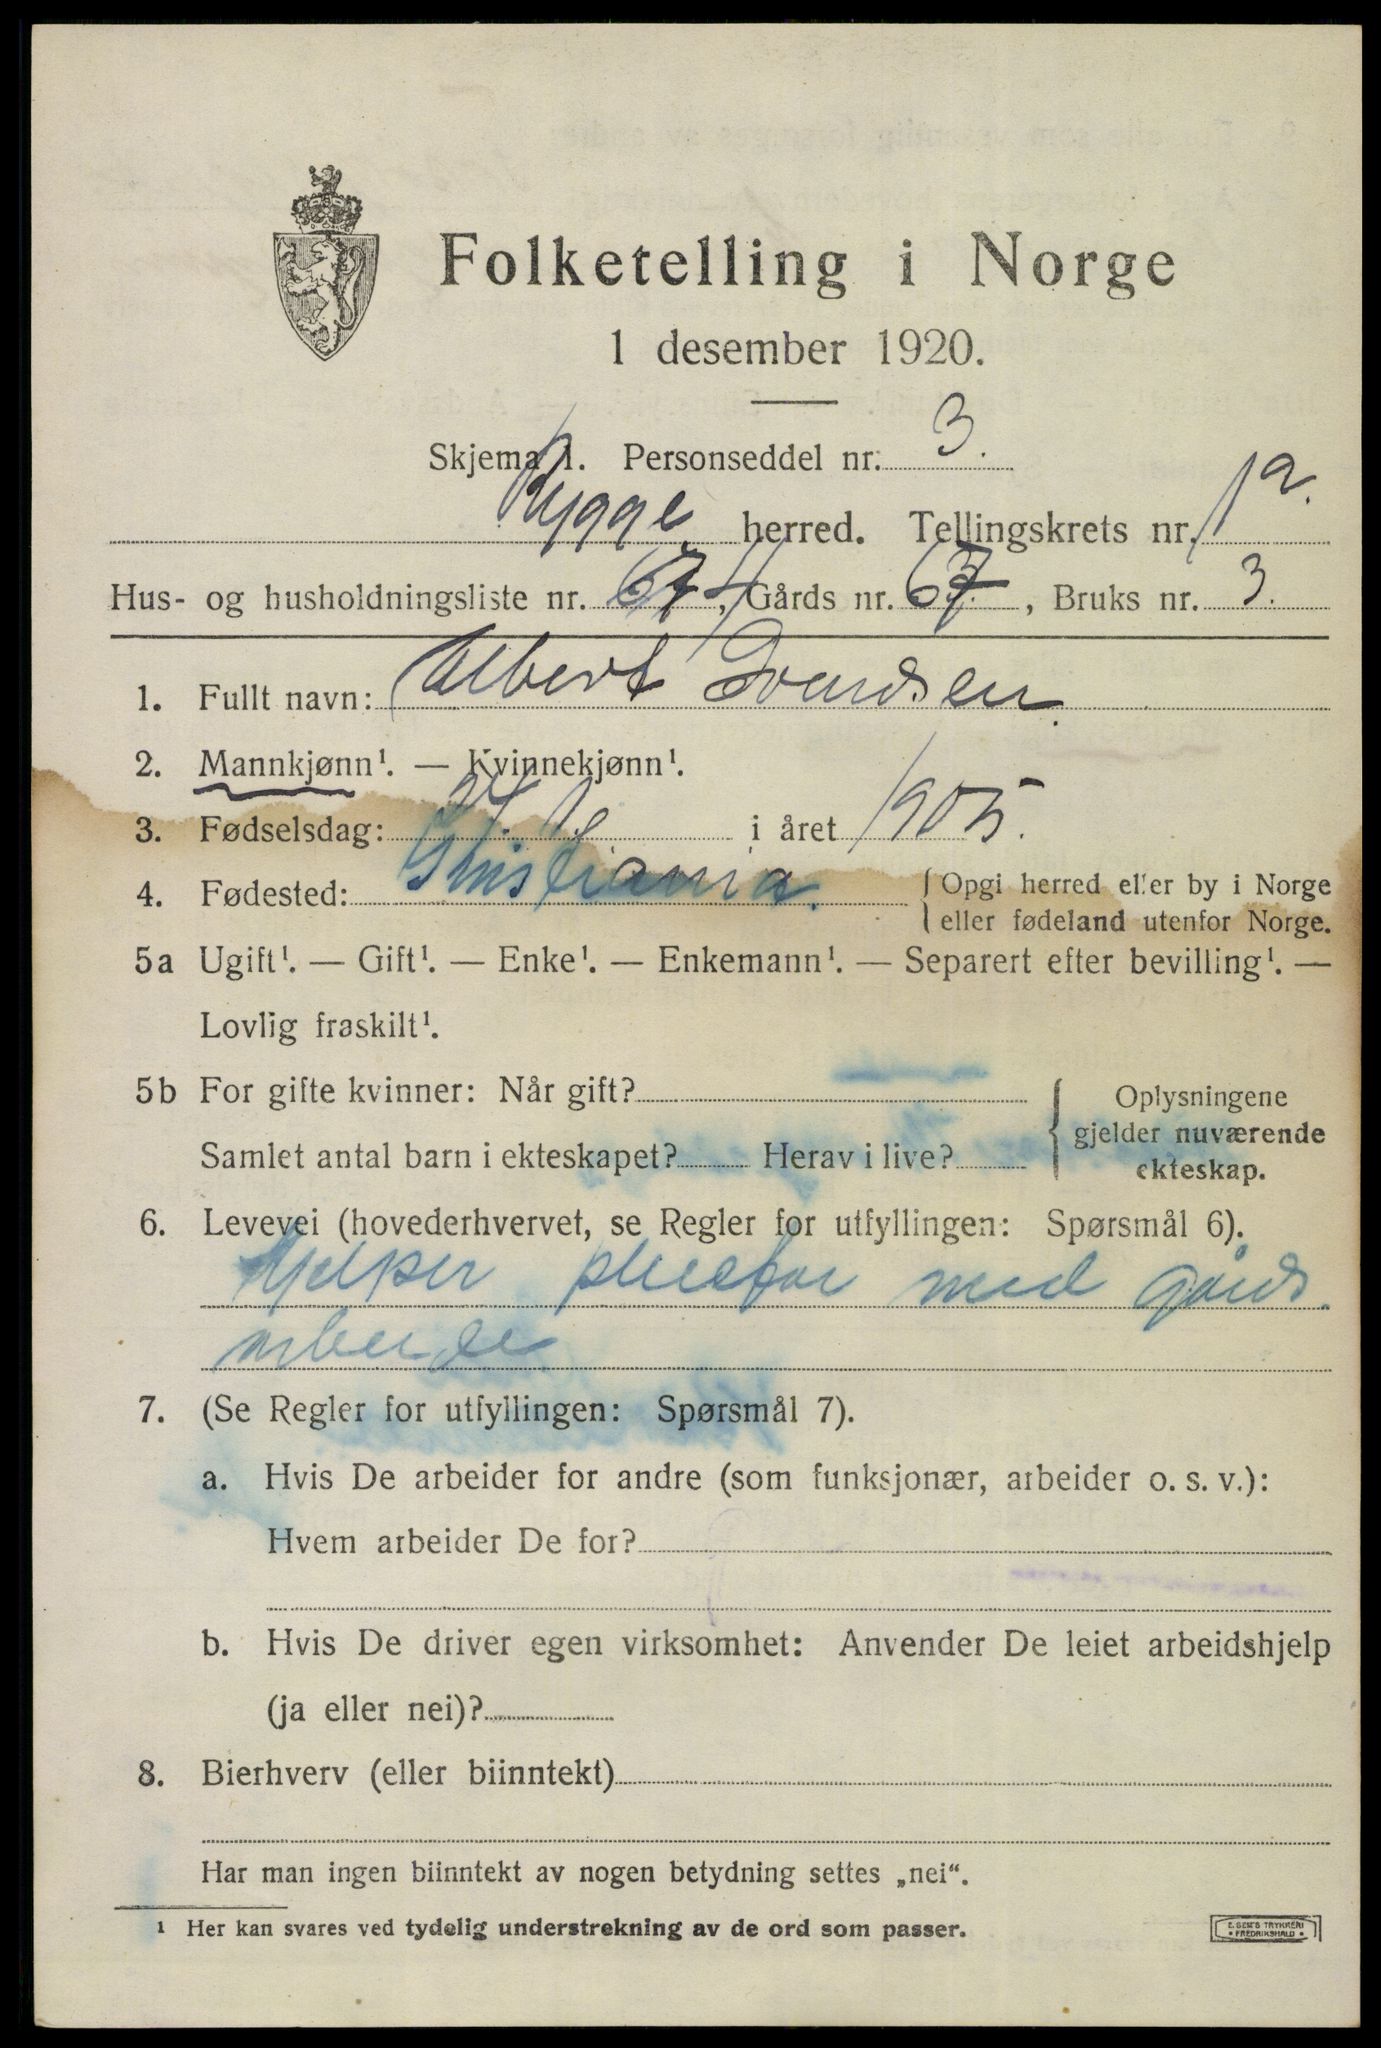 Folketelling i Norge
1 desember 1920.
Skjema 1. Personseddel nr. 3.
Rygge herred. Tellingskrets nr. 1a.
Hus- og husholdningsliste nr. , Gårds nr. , Bruks nr. 3.
1. Fullt navn: Albert
2. Mannkjønn¹. — Kvinnekjønn¹.
3. Fødselsdag: i året 1905.
4. Fødested: Kristiania. { Opgi herred eller by i Norge
eller fødeland utenfor Norge.
5a Ugift¹. — Gift¹. — Enke¹. — Enkemann¹. — Separert efter bevilling¹. —
Lovlig fraskilt¹.
5b For gifte kvinner: Når gift?
Samlet antal barn i ekteskapet? Herav i live?
{ Oplysningene
gjelder nuværende
ekteskap.
6. Levevei (hovederhvervet, se Regler for utfyllingen: Spørsmål 6).
Hjelper pleiefar med gårds
arbeide
7. (Se Regler for utfyllingen: Spørsmål 7).
a. Hvis De arbeider for andre (som funksjonær, arbeider o. s. v.):
Hvem arbeider De for?
b. Hvis De driver egen virksomhet: Anvender De leiet arbeidshjelp
(ja eller nei)?
8. Bierhverv (eller biinntekt)
Har man ingen biinntekt av nogen betydning settes „nei“.
¹ Her kan svares ved tydelig understrekning av de ord som passer.
E. SEM'S TRYKKERI
• FREDRIKSHALD •